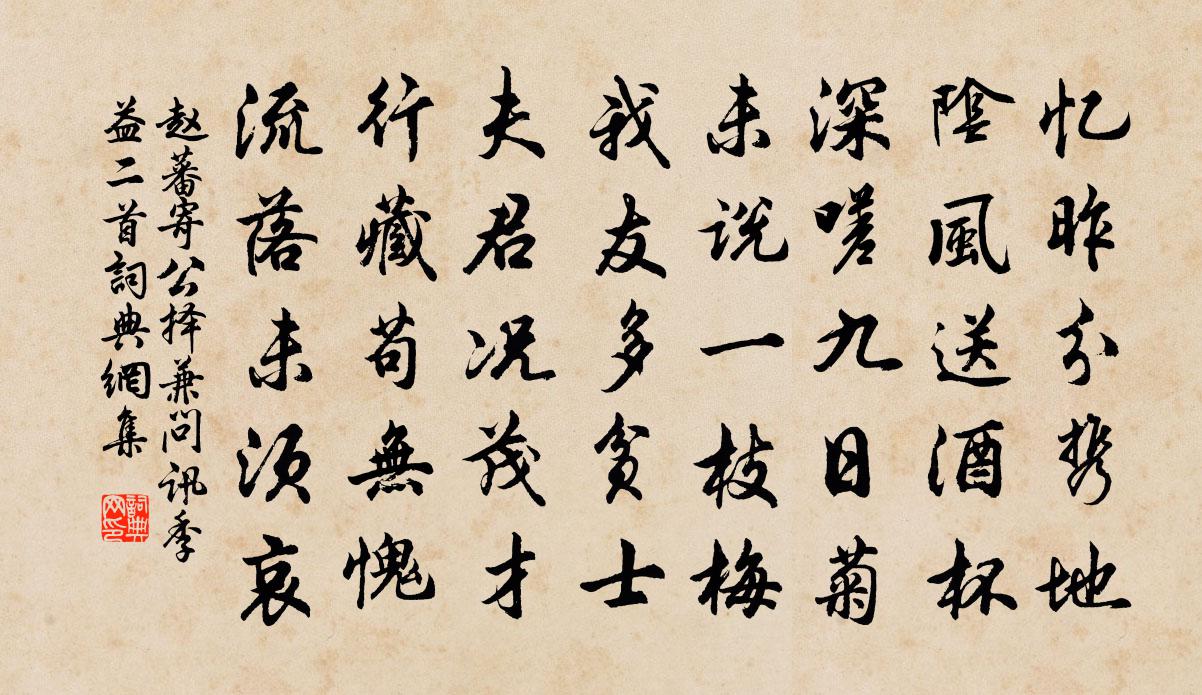 忆昨分携地
陰風送酒杯
深嗟九日菊
未说一枝梅
我友多贫士
夫君况茂才
行藏苟無愧
流落未须哀
赵蕃寄公择兼问讯季
益二首詞典網集
詞典網印